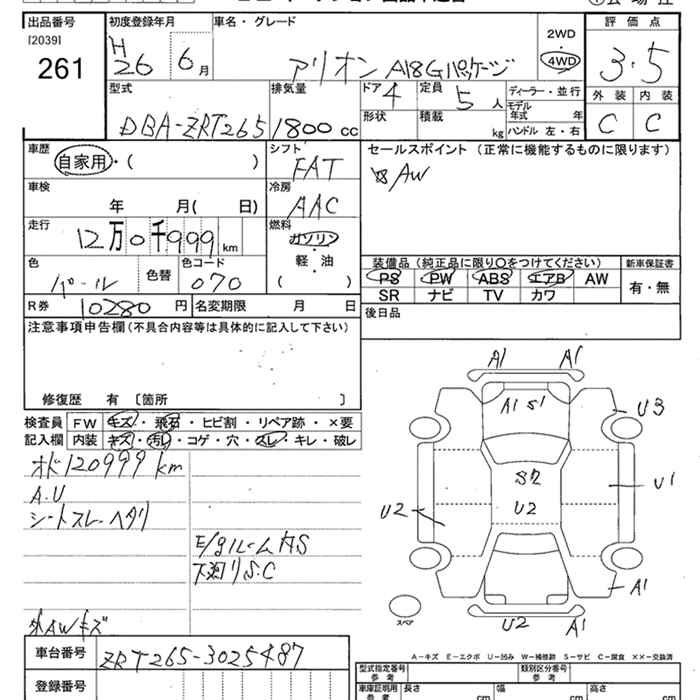 出品番号 初度登録年月 車名・グレード 2WD 評価点
[2039] H26 6月 アリオン A18Gパッケージ ・ 3.5
261 4WD
型式 排気量 ドア 定員 ディーラー・並行 外装 内装
DBA-ZRT265 1800cc 4 5人 モデル年式 年 C C
形状 積載 kg ハンドル 左・右
車歴 シフト セールスポイント (正常に機能するものに限ります)
自家用・( ) FAT AW
車検 冷房
年 月( 日) AAC
走行 燃料
12万0千999km ガソリン
軽・油
( )
色 色替 色コード 装備品(純正品に限り○をつけてください) 新車保証書
パール 070 PS PW ABS エアB AW 有・無
SR ナビ TV カワ
R券 10280円 名変期限 月 日 後日品
注意事項申告欄(不具合内容等は具体的に記入して下さい)
修復歴 有 〔箇所 〕
検査員 FW キズ・飛石・ヒビ割・リペア跡・×要
記入欄 内装 キズ・汚れ・コゲ・穴・スレ・キレ・破レ
オド120999km
A.U
シートスレ・ヘタリ
E/gルームサS
下廻りS.C
外AWキズ
A1 A1
A1 S1
U3
S2
U2
U1
U2
A1
U2 A1
スペア
A-キズ E-エクボ U-凹み W-補修跡 S-サビ C-腐食 ××-交換済
車台番号 ZRT265-3025487
登録番号
型式指定番号 参考 類別区分番号 参考
車庫証明用 参考 長さ cm 幅 cm 高さ cm